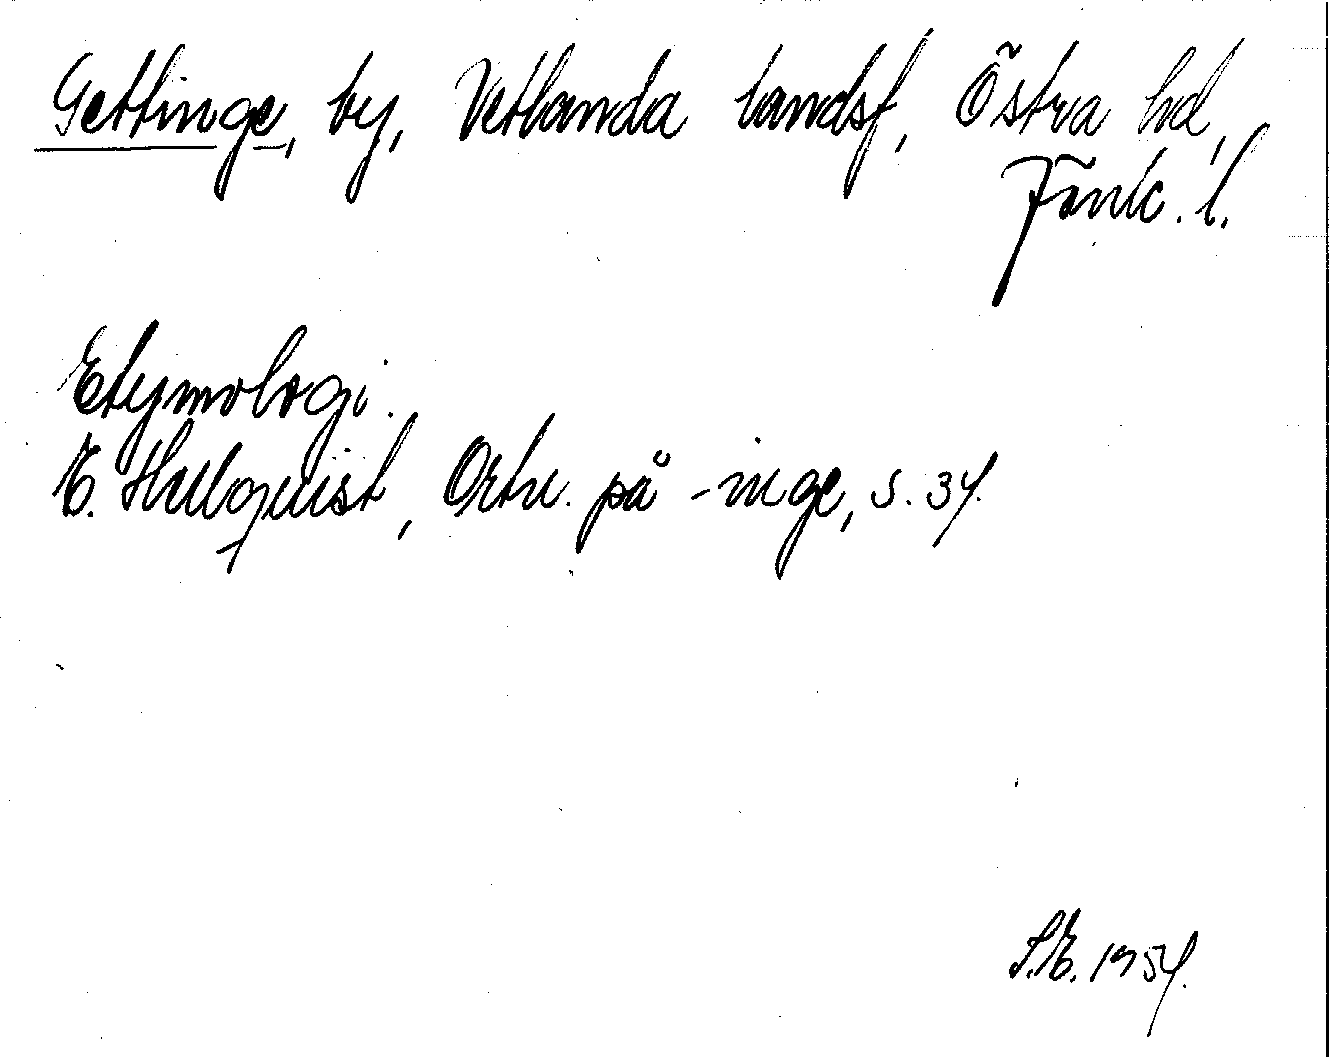 Gettinge, by, Vetlanda landsf, Östra hd,
Jönk. l.
Etymologi.
E. Hellquist, Ortn. på -inge, s. 34.
S.E. 1954.